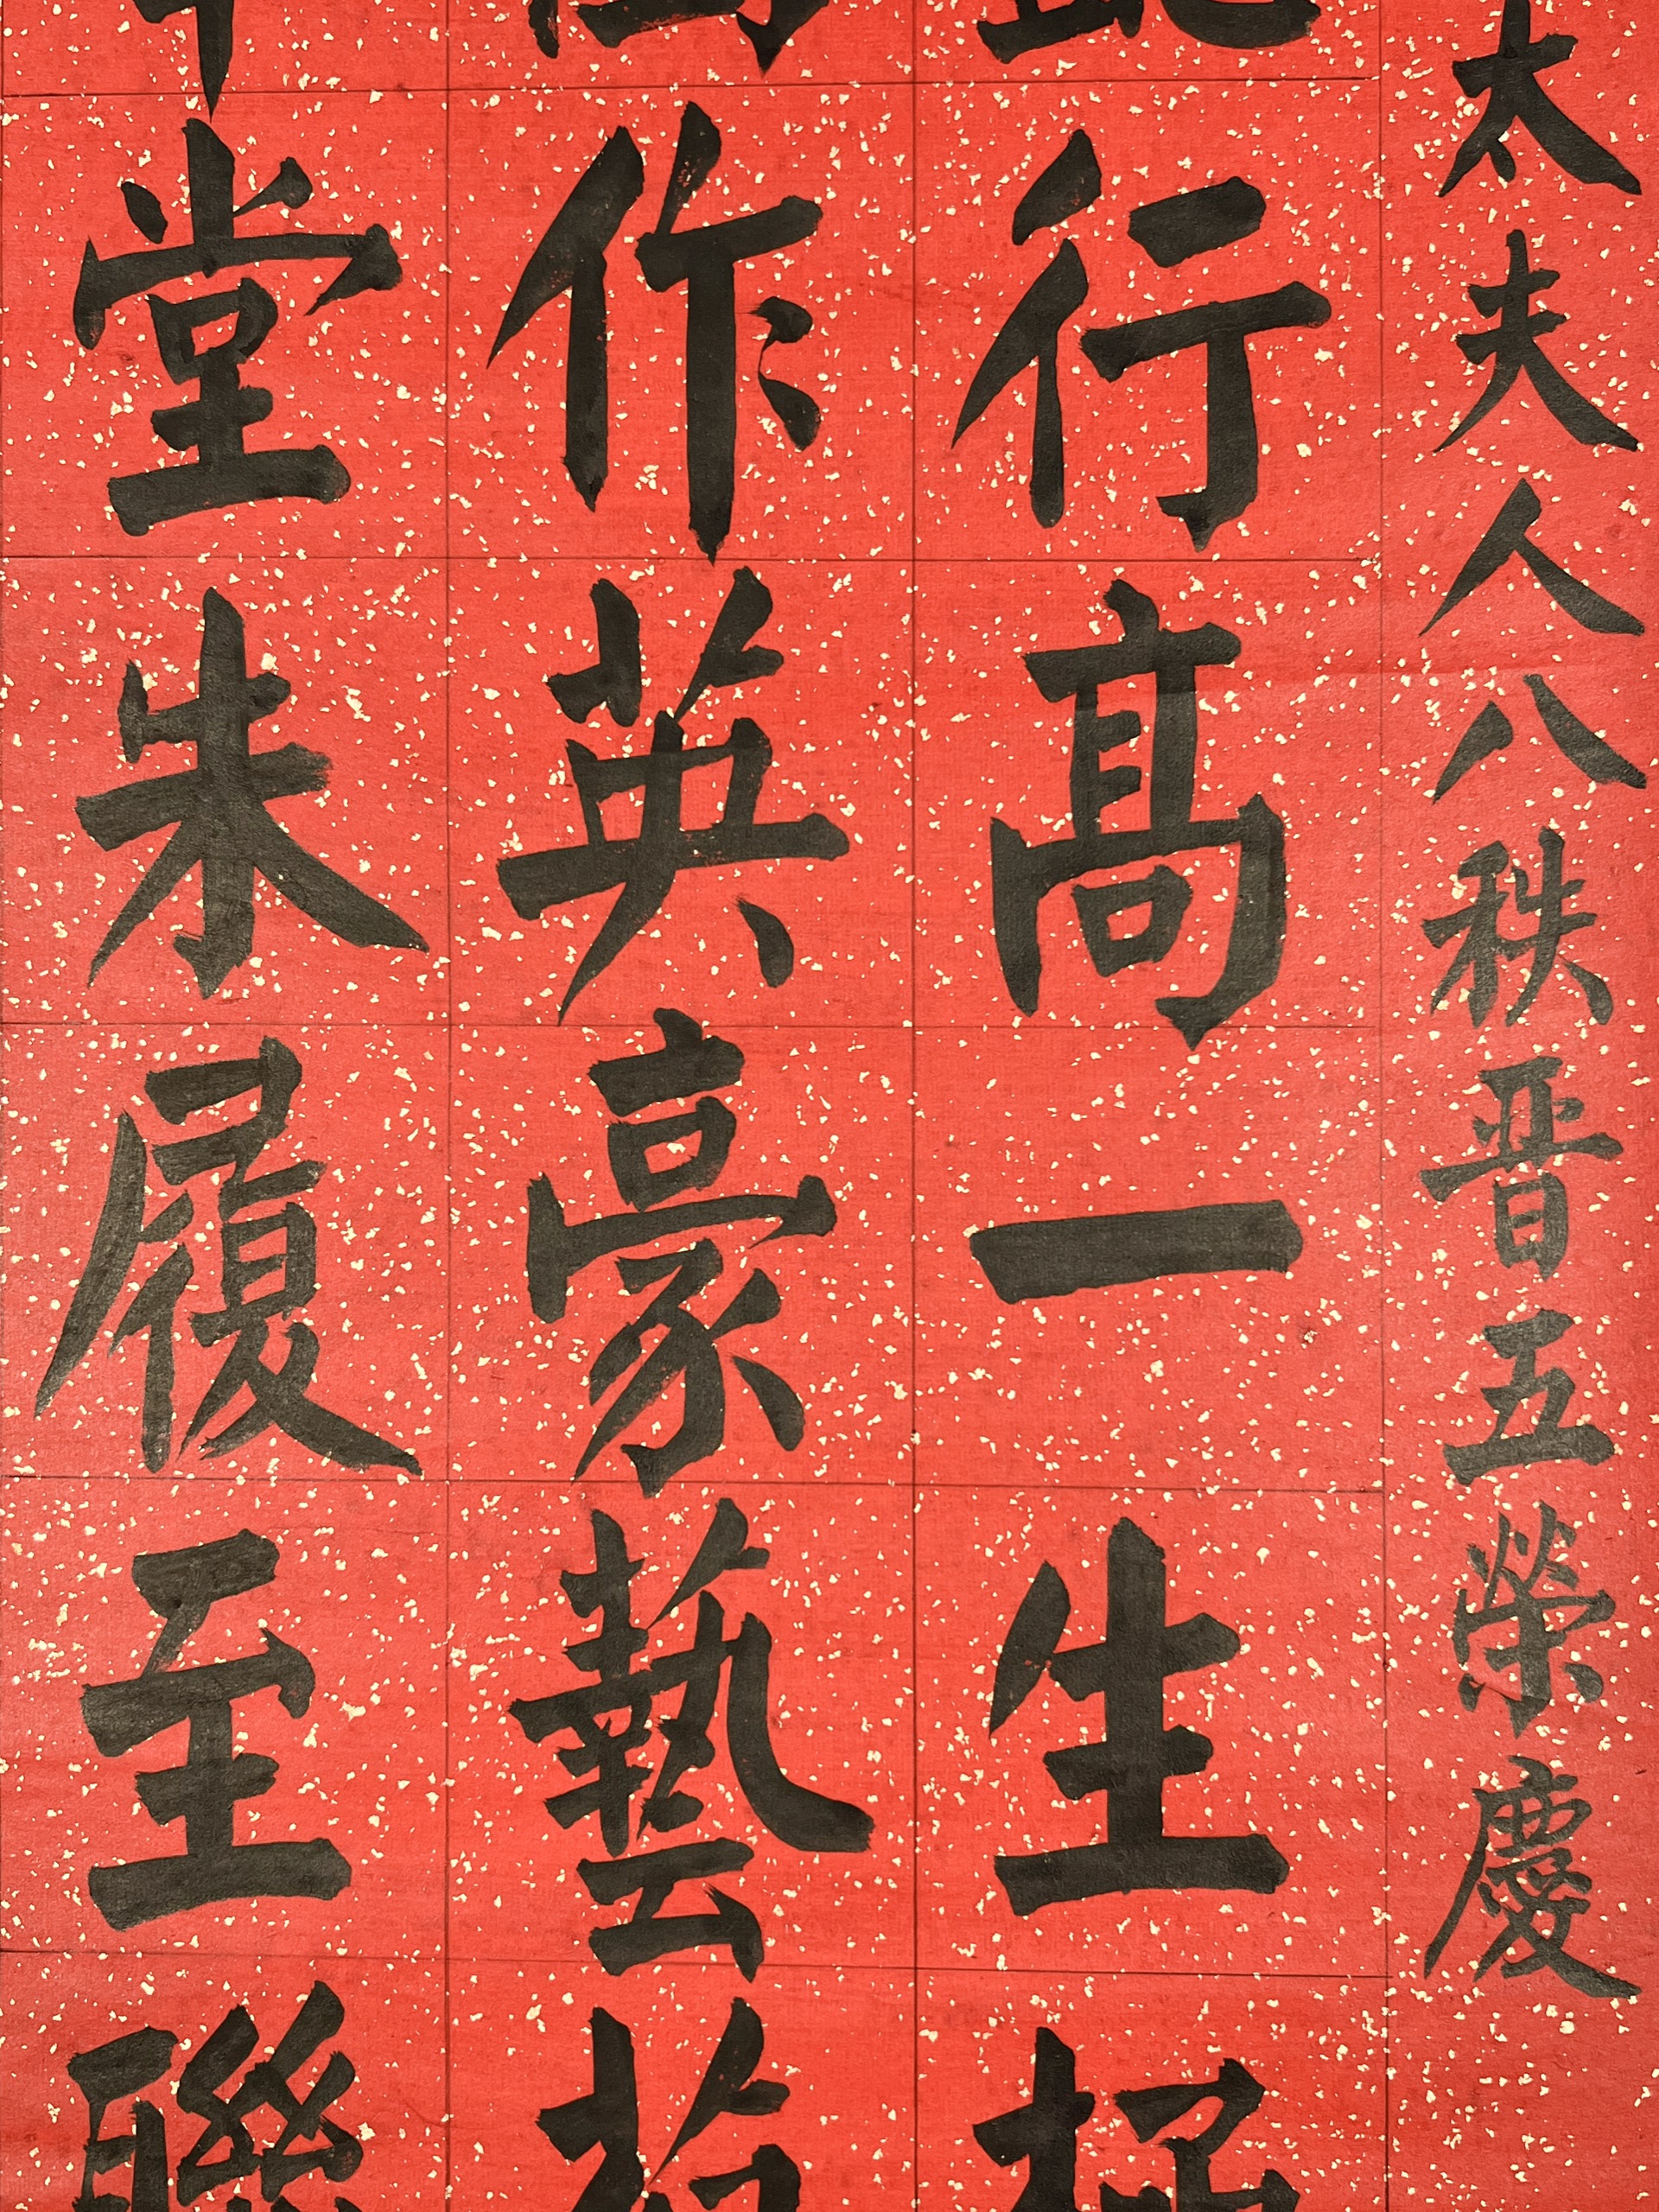 太夫人八秩晉五榮慶
行高一生
作英豪藝
堂朱履至聯